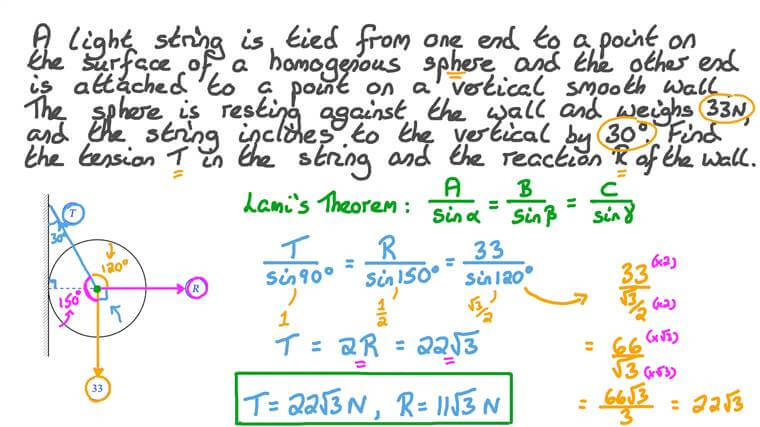 A light string is tied from one end to a point on
the surface of a homogenous sphere and the other end
is attached to a point on a vertical smooth wall.
The sphere is resting against the wall and weighs 33N,
and the string inclines to the vertical by 30°. Find
the tension T in the string and the reaction R of the wall.
Lami's Theorem: A/sinα = B/sinβ = C/sinγ
T
30°
120°
150°
R
33
T/sin90° = R/sin150° = 33/sin120°
1 1/2 √3/2
T = 2R = 22√3
T=22√3 N, R=11√3 N
33 (x2)
√3/2 (x2)
= 66 (x√3)
√3 (x√3)
= 66√3/3 = 22√3